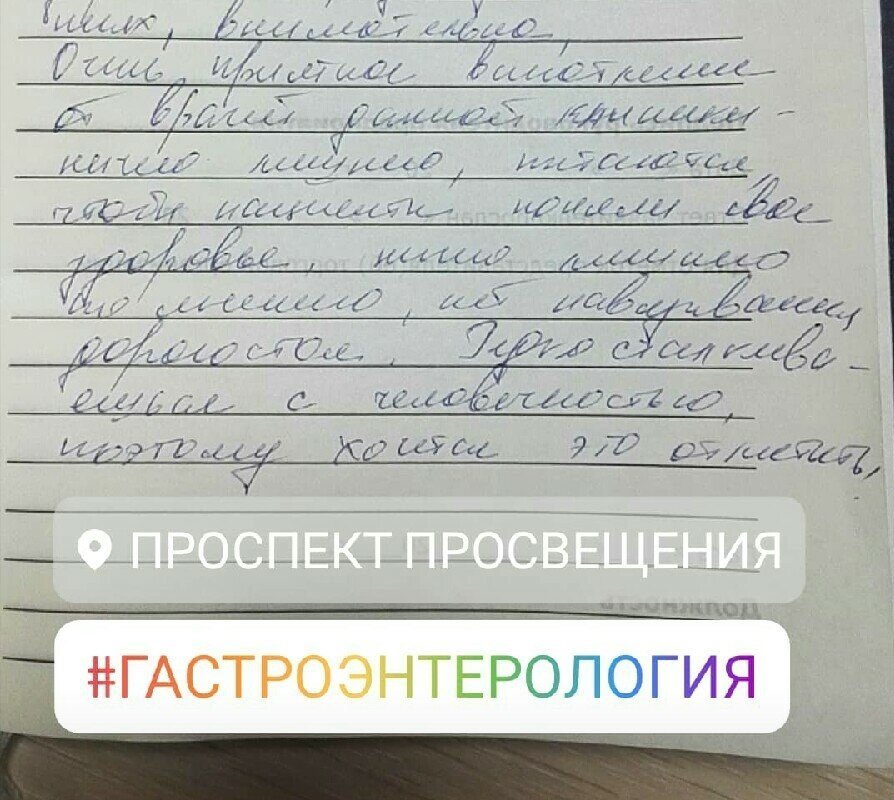 них, внимательно,
Очень приятное впечатление
от врачей данной клиники -
ничего лишнего, пытаются,
чтобы пациенты поняли свое
здоровье
по мнению, нет навязывания
дорогостоя. Редко сталкива-
ешься с человечностью,
поэтому хочется это отметить!
ПРОСПЕКТ ПРОСВЕЩЕНИЯ
Должность
#ГАСТРОЭНТЕРОЛОГИЯ